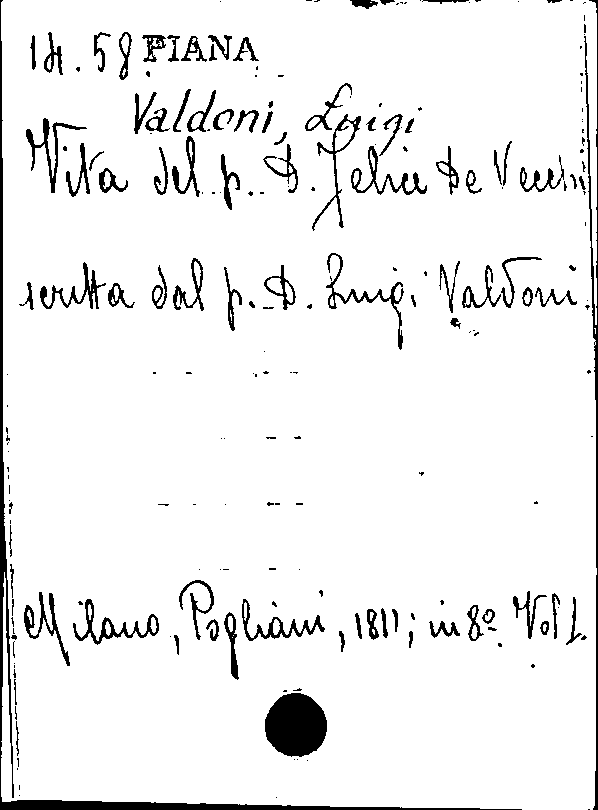 14. 58 PIANA
Valdoni, Luigi
Vita del p. D. Felice De Vecchi
scritta dal p. D. Luigi Valdoni.
Milano, Pogliani, 1811; in 8º Vol 1.